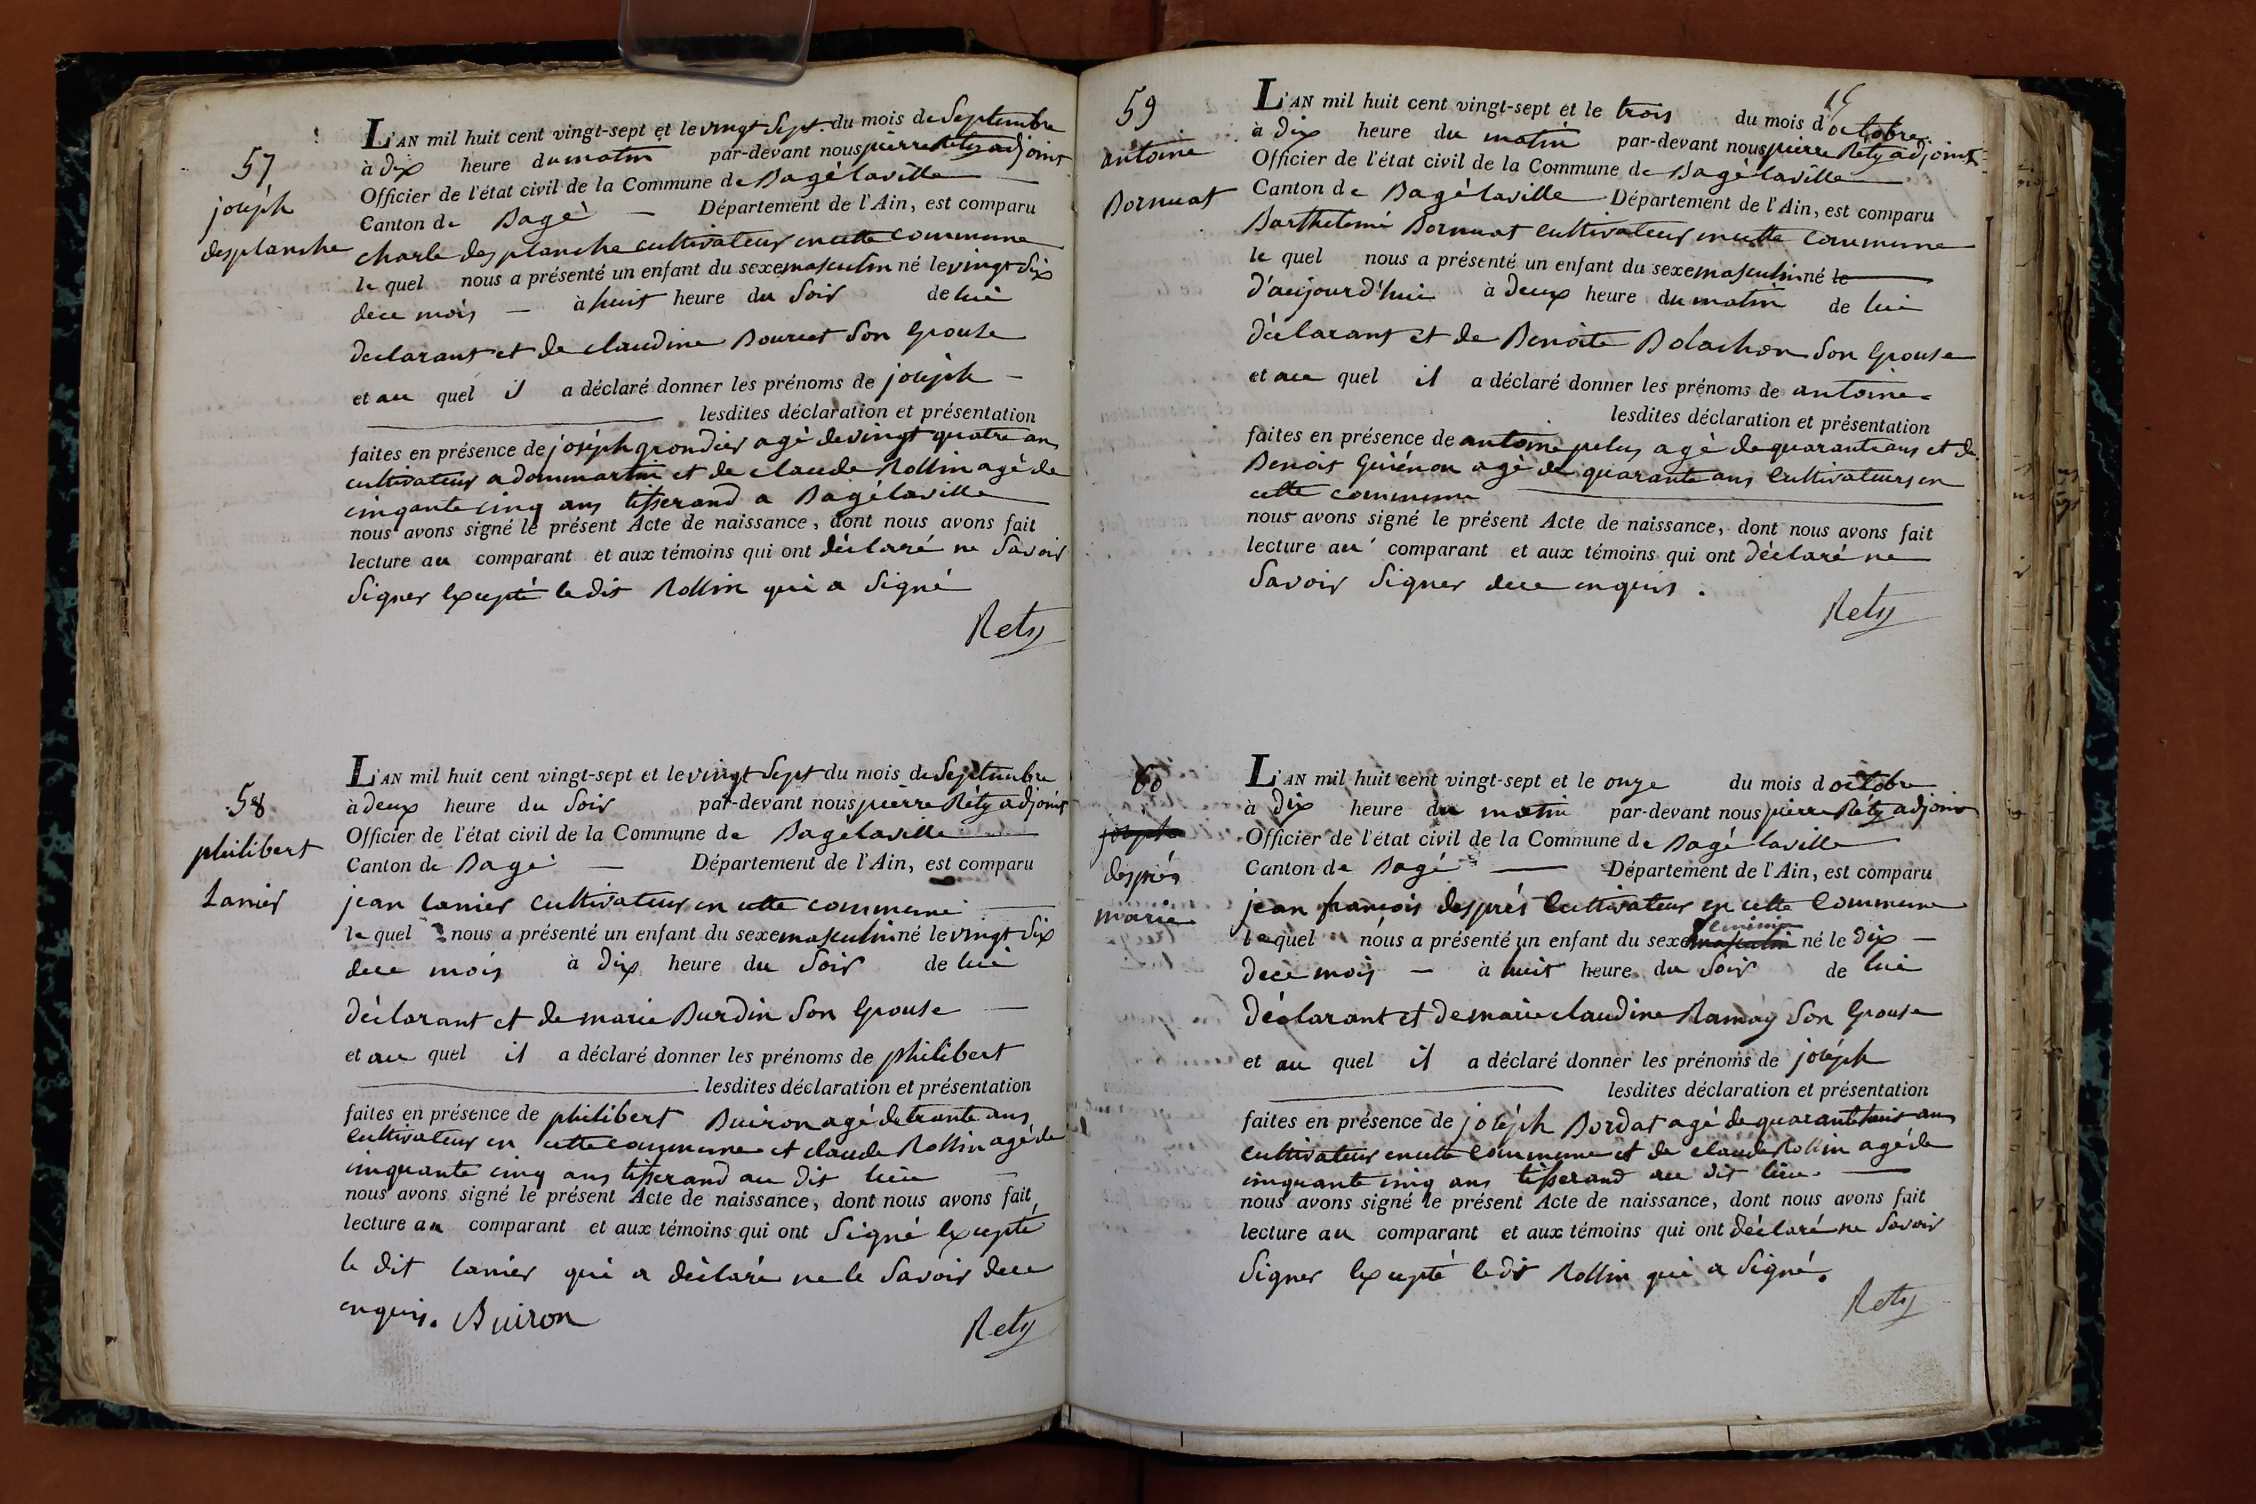 57
joséph
desplanche
L'AN mil huit cent vingt-sept et le vingt Sept du mois de Septembre
à dix heure du matin par-devant nous pierre Réty adjoint
Officier de l'état civil de la Commune de Bagélaville
Canton de Bagé Département de l'Ain, est comparu
charle desplanche cultivateur en cette commune
le quel nous a présenté un enfant du sexe masculin né le vingt Six
de ce mois à huit heure du Soir de lui
declarant et de claudine Son Epouse
et au quel il a déclaré donner les prénoms de joséph
lesdites déclaration et présentation
faites en présence de joséph grondier agé de vingt quatre ans
cultivateur a dommartin et de claude Rollin agé de
cinqante cinq ans tisserand a Bagélaville
nous avons signé le présent Acte de naissance, dont nous avons fait
lecture au comparant et aux témoins qui ont déclaré ne Savoir
Signer Excepté le dit Rollin qui a Signé
Rety
58
philibert
Lanier
L'AN mil huit cent vingt-sept et le vingt Sept du mois de Septembre
à deux heure du Soir par-devant nous pierre Réty adjoint
Officier de l'état civil de la Commune de Bagélaville
Canton de Bagé Département de l'Ain, est comparu
jean Lanier cultivateur en cette commune
le quel nous a présenté un enfant du sexe masculin né le vingt Six
de ce mois à dix heure du Soir de lui
déclarant et de marie Burdin Son Epouse
et au quel il a déclaré donner les prénoms de philibert
lesdites déclaration et présentation
faites en présence de philibert Buiron agé de trante ans
Cultivateur en cette commune et claude Rollin agé de
cinquante cinq ans tisserand au dit lieu
nous avons signé le présent Acte de naissance, dont nous avons fait
lecture au comparant et aux témoins qui ont Signé Excepté
le dit Lanier qui a déclaré ne le Savoir de ce
enquis. Buiron
Rety
15
59
antoine
Bornuat
L'AN mil huit cent vingt-sept et le trois du mois d'octobre
à dix heure du matin par-devant nous pierre Réty adjoint
Officier de l'état civil de la Commune de Bagélaville
Canton de Bagélaville Département de l'Ain, est comparu
Barthelemi Bornuat Cultivateur en cette commune
le quel nous a présenté un enfant du sexe masculin né le
d'aujourd'hui à deux heure du matin de lui
déclarant et de Benoite Bolachon Son Epouse
et au quel il a déclaré donner les prénoms de antoine
lesdites déclaration et présentation
faites en présence de antoine pelus agé de quarante ans et de
Benoit Guiénon agé de quarante ans Cultivateurs en
cette commune
nous avons signé le présent Acte de naissance, dont nous avons fait
lecture au comparant et aux témoins qui ont déclaré ne
Savoir Signer de ce enquis.
Rety
60
joséph
després
marie
L'AN mil huit cent vingt-sept et le onze du mois d octobre
à dix heure du matin par-devant nous pierre Réty adjoint
Officier de l'état civil de la Commune de Bagé laville
Canton de Bagé Département de l'Ain, est comparu
jean françois després Cultivateur en cette Commune
feminin
le quel nous a présenté un enfant du sexe masculin né le dix
de ce mois à huit heure du Soir de lui
déclarant et de marie claudine Ramay Son Epouse
et au quel il a déclaré donner les prénoms de joséph
lesdites déclaration et présentation
faites en présence de joséph Bordat agé de quarante huit ans
cultivateur en cette Commune et de claude Rollin agé de
cinquante cinq ans tisserand au dit lieu
nous avons signé le présent Acte de naissance, dont nous avons fait
lecture au comparant et aux témoins qui ont déclaré ne Savoir
Signer Excepté le dit Rollin qui a Signé.
Rety